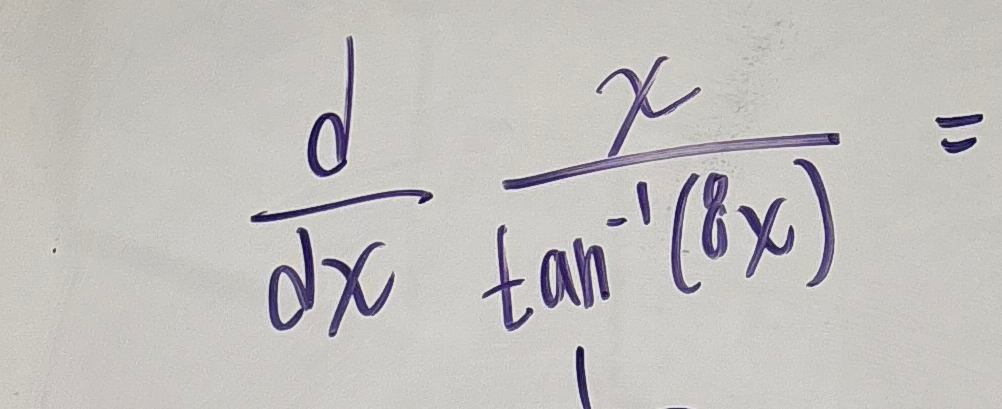 d/dx x/tan⁻¹(8x) =